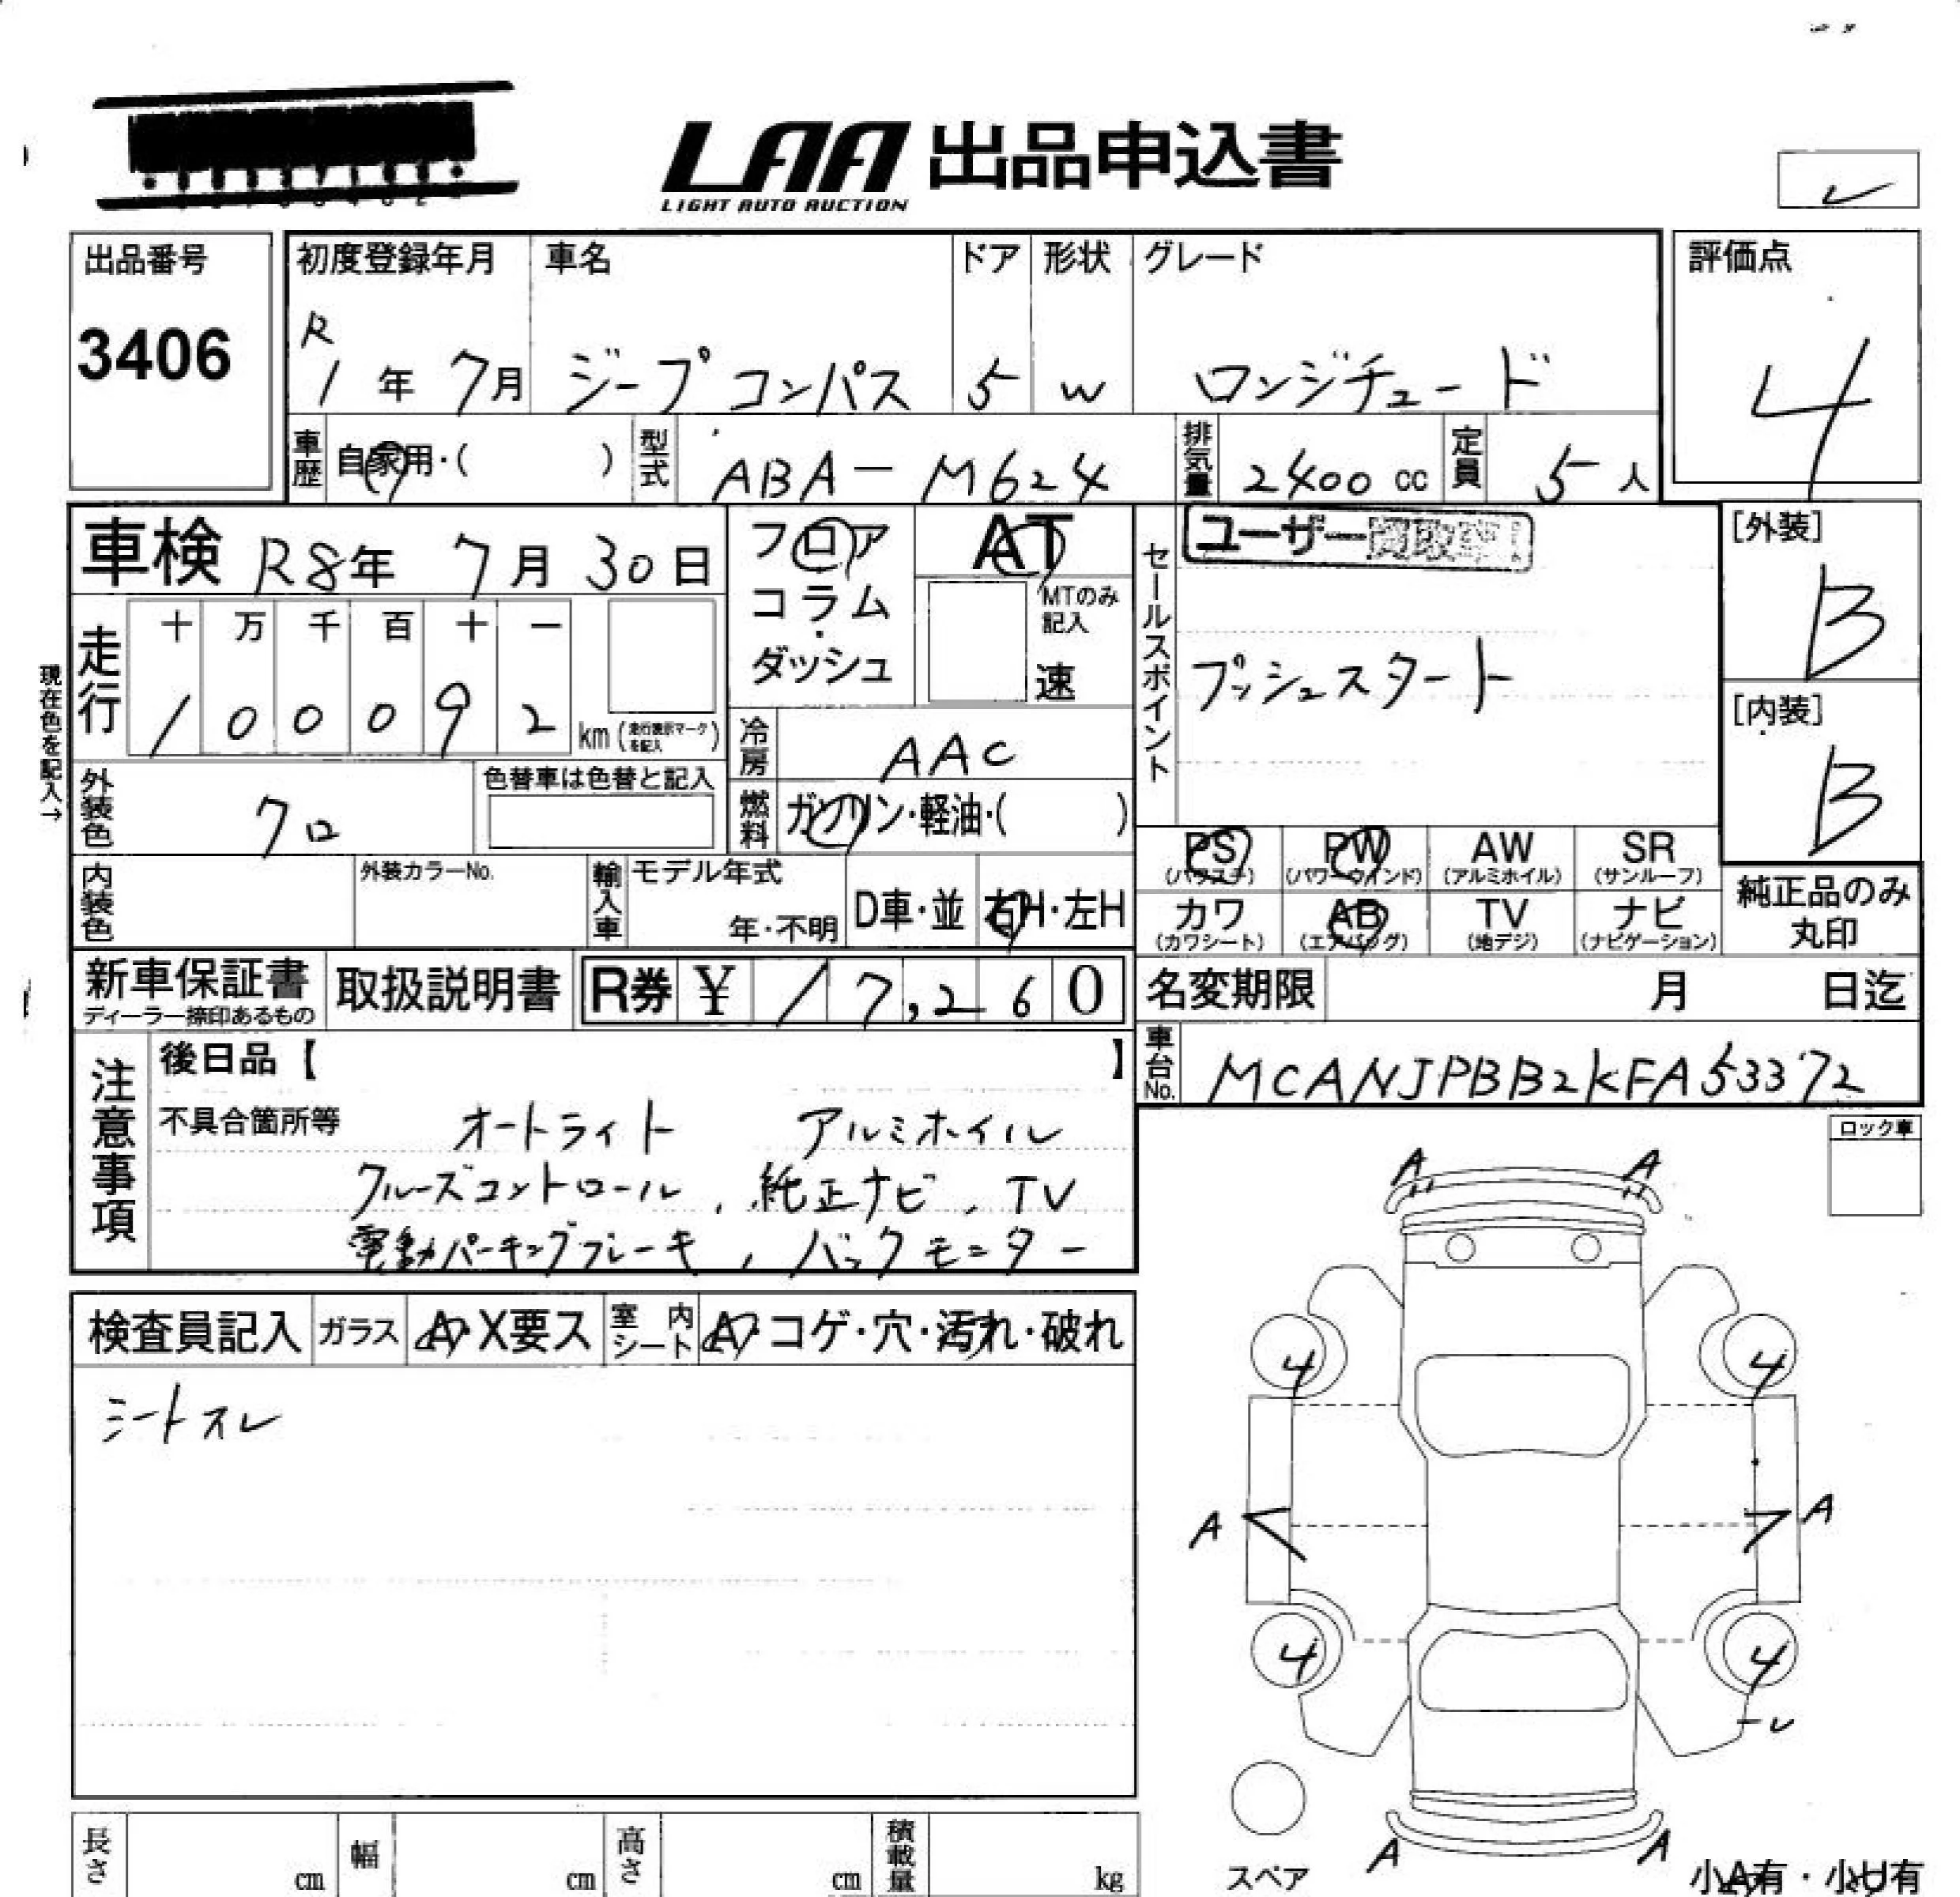 LAA 出品申込書
LIGHT AUTO AUCTION
出品番号
3406
初度登録年月 車名 ドア 形状 グレード
R1年 7月 ジープコンパス 5 W ロンジチュード
評価点
4
車歴 自家用・( ) 型式 ABA-M624 排気量 2400cc 定員 5人
車検 R8年 7月 30日
フロア
コラム・
ダッシュ
AT
MTのみ記入
速
セールスポイント
ユーザー
プッシュスタート
[外装]
B
[内装]
B
現在色を記入→
走行
十 万 千 百 十 一
1 0 0 0 9 2 km (走行表示マークを記入)
冷房 AAC
燃料 ガソリン・軽油・( )
外装色 クロ 色替車は色替と記入
内装色 外装カラーNo. 輸入車 モデル年式 年・不明 D車・並 右H・左H
PS (パワステ) PW (パワーウインド) AW (アルミホイル) SR (サンルーフ)
カワ (カワシート) AB (エアバッグ) TV (地デジ) ナビ (ナビゲーション)
純正品のみ
丸印
新車保証書 ディーラー捺印あるもの 取扱説明書 R券 ¥ 17,260
名変期限 月 日迄
車台No. MCANJPBB2KFA53372
注意事項
後日品【 】
不具合箇所等 オートライト アルミホイル
クルーズコントロール, 純正ナビ, TV
電動パーキングブレーキ, バックモニター
ロック車
検査員記入 ガラス A・X要ス 室内シート A・コゲ・穴・汚れ・破れ
シートスレ
A A
4 4
A A
4 4
A A
スペア
小A有・小U有
長さ cm 幅 cm 高さ cm 積載量 kg